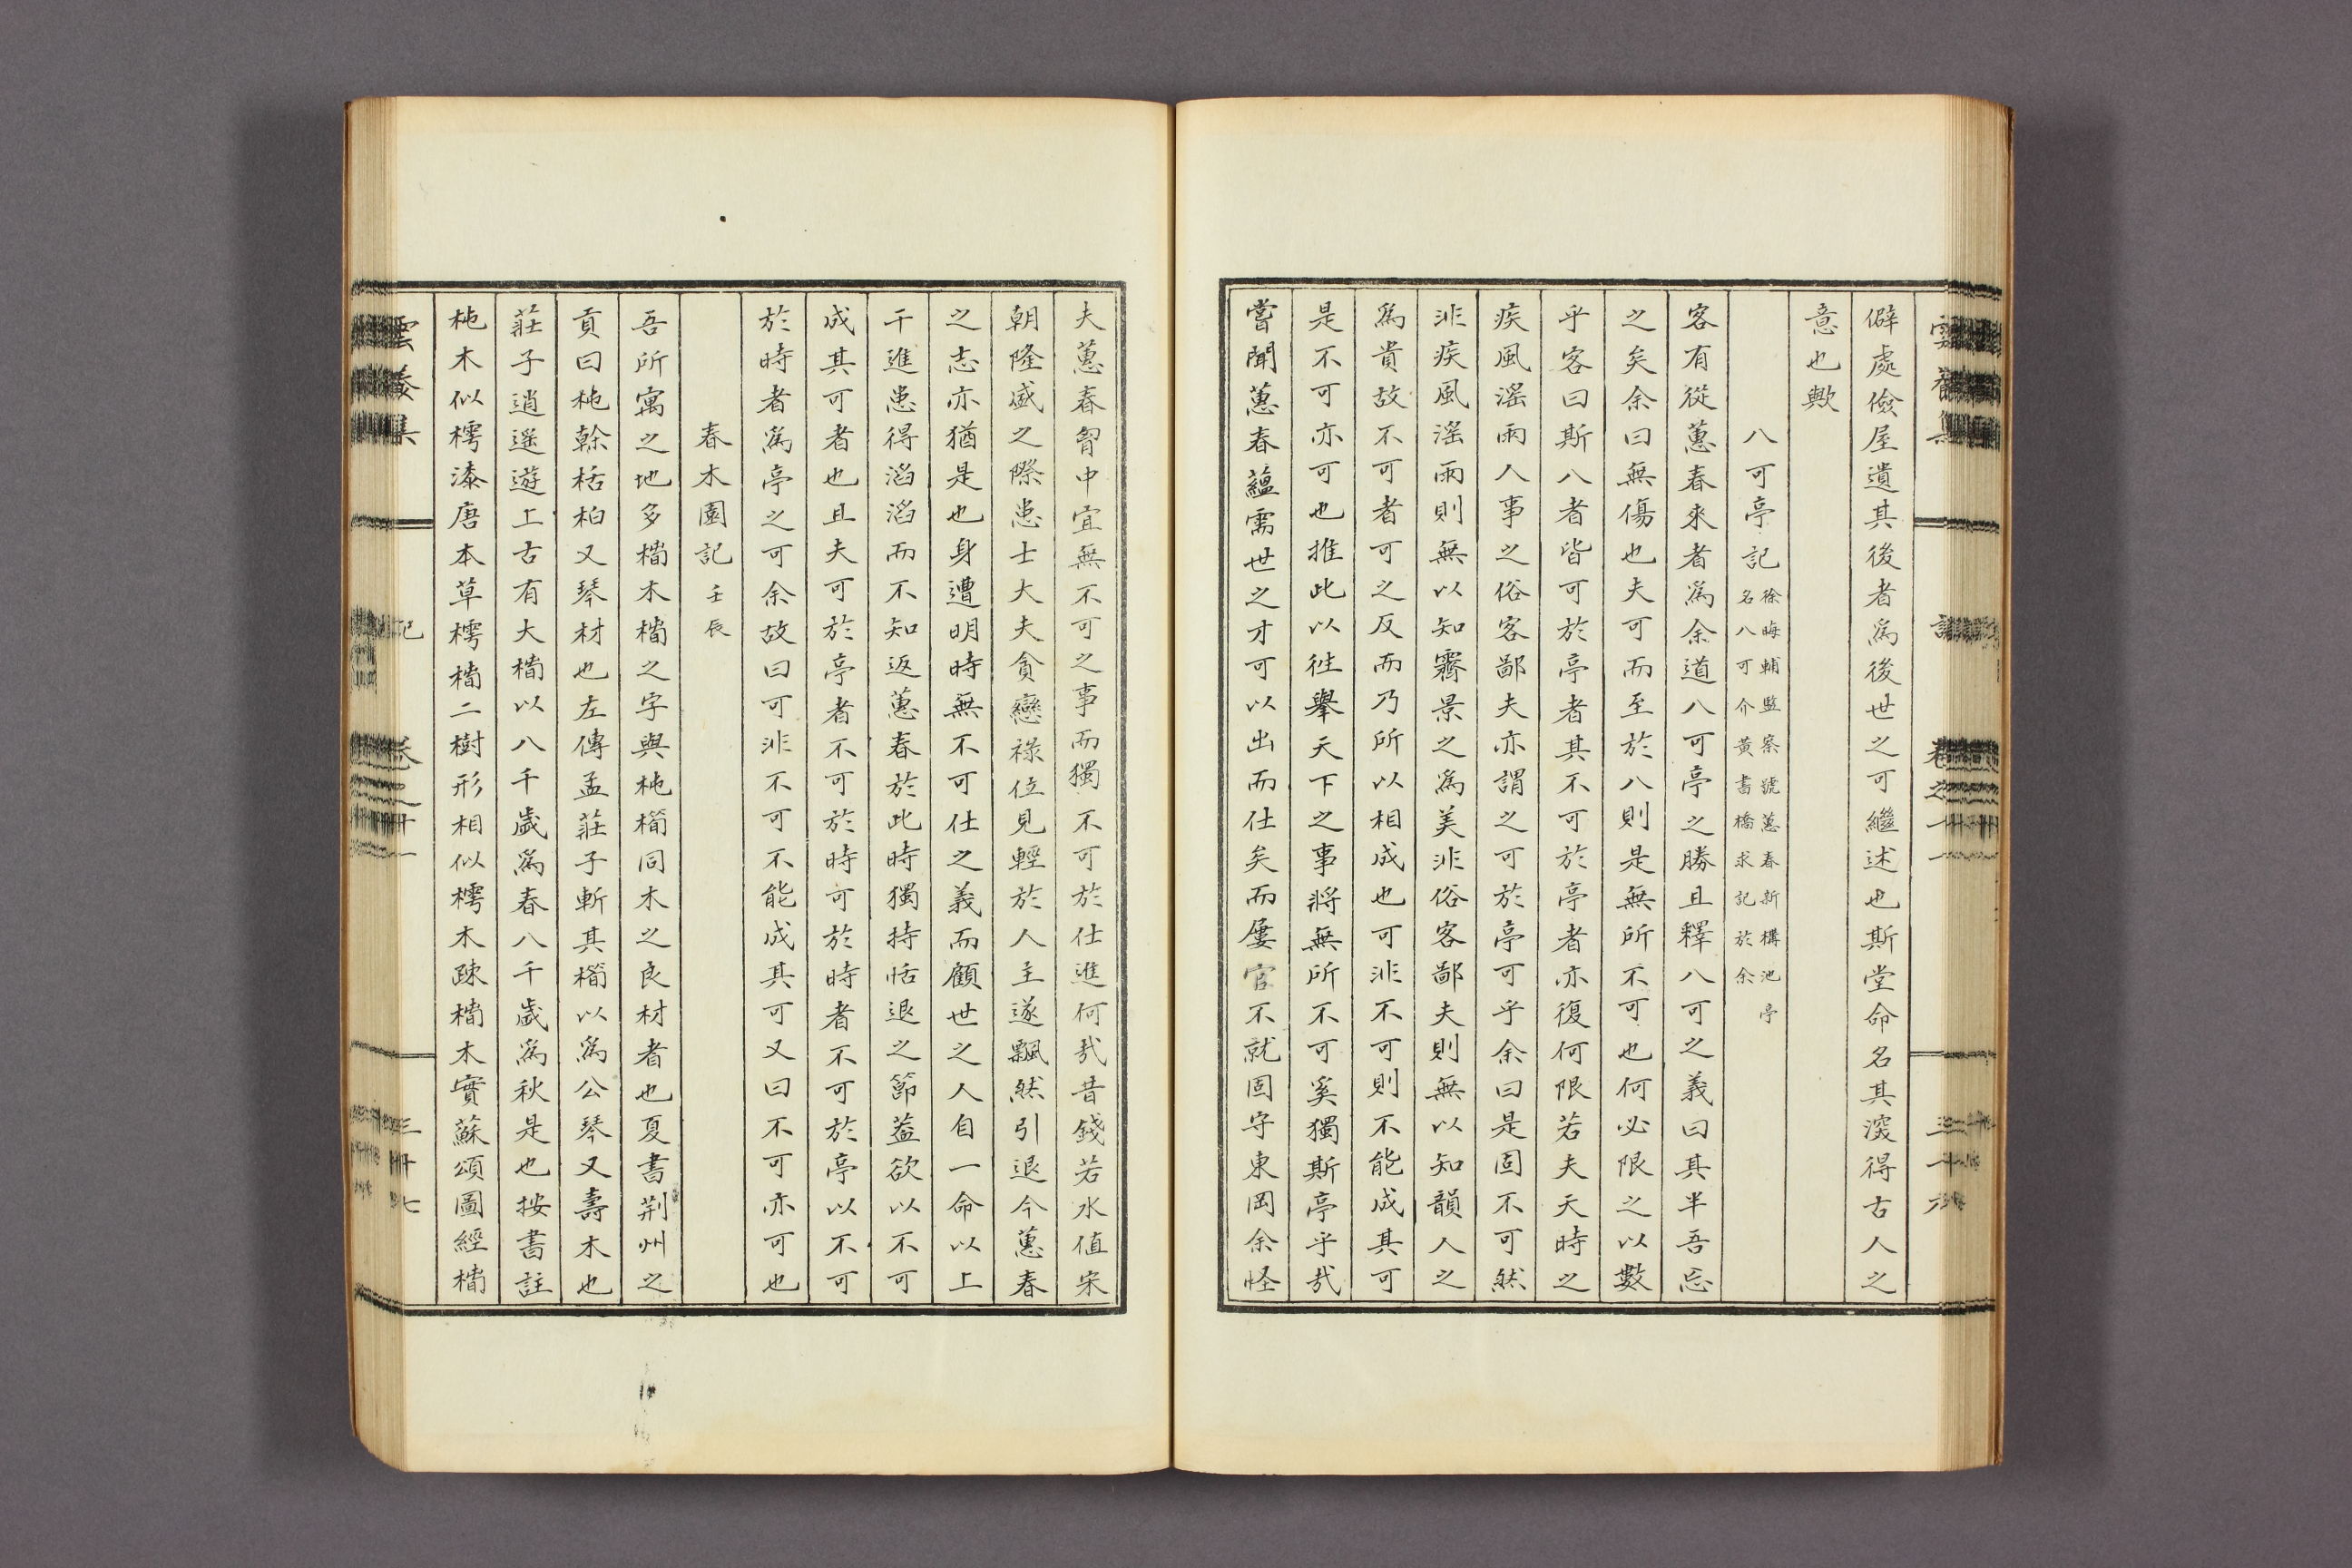 僻處儉屋遺其後者爲後世之可繼述也斯堂命名其深得古人之
意也歟
八可亭記 徐晦輔監察號蕙春新構池亭
名八可介黃書橋求記於余
客有從蕙春來者爲余道八可亭之勝且釋八可之義曰其半吾忘
之矣余曰無傷也夫可而至於八則是無所不可也何必限之以數
乎客曰斯八者皆可於亭者其不可於亭者亦復何限若夫天時之
疾風滛雨人事之俗客鄙夫亦謂之可於亭可乎余曰是固不可然
非疾風滛雨則無以知霽景之爲美非俗客鄙夫則無以知韻人之
爲貴故不可者可之反而乃所以相成也可非不可則不能成其可
是不可亦可也推此以徃擧天下之事將無所不可奚獨斯亭乎哉
嘗聞蕙春蘊需世之才可以出而仕矣而屢官不就固守東岡余怪
夫蕙春胷中宜無不可之事而獨不可於仕進何哉昔錢若水值宋
朝隆盛之際患士大夫貪戀祿位見輕於人主遂飄然引退今蕙春
之志亦猶是也身遭明時無不可仕之義而顧世之人自一命以上
干進患得滔滔而不知返蕙春於此時獨持恬退之節蓋欲以不可
成其可者也且夫可於亭者不可於時可於時者不可於亭以不可
於時者爲亭之可余故曰可非不可不能成其可又曰不可亦可也
春木園記 壬辰
吾所寓之地多橁木橁之字與杶櫄同木之良材者也夏書荆州之
貢曰杶榦栝柏又琴材也左傳孟莊子斬其橁以爲公琴又壽木也
莊子逍遙遊上古有大橁以八千歲爲春八千歲爲秋是也按書註
杶木似樗漆唐本草樗橁二樹形相似樗木踈橁木實蘇頌圖經橁
集
記